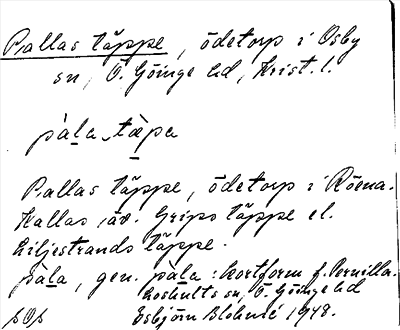 Pallas täppe, ödetorp i Osby
sn, Ö. Göinge hd, Krist. l.
pàla tæpa
Pallas täppe, ödetorp i Röena.
Kallas äv. Grips täppe el.
Liljestrands täppe.
pàla, gen. pàla: kortform f. Pernilla.
Loshults sn, Ö. Göinge hd
Esbjörn Blohmé 1948.